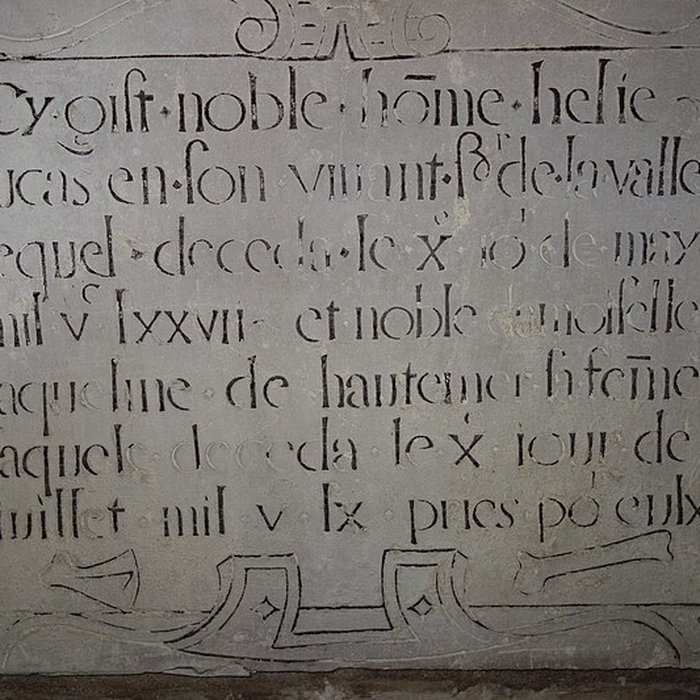 Cy · gist · noble · hōme · helie
ucas en · son vivant · sʳ de · la · valle
equel · deceda · le xᵉ jor de may
mil vᶜ lxxvii et noble damoiselle
aqueline · de hautemer sa fēme
aquele deceda le x jour de
juillet mil v lx pries por eulx